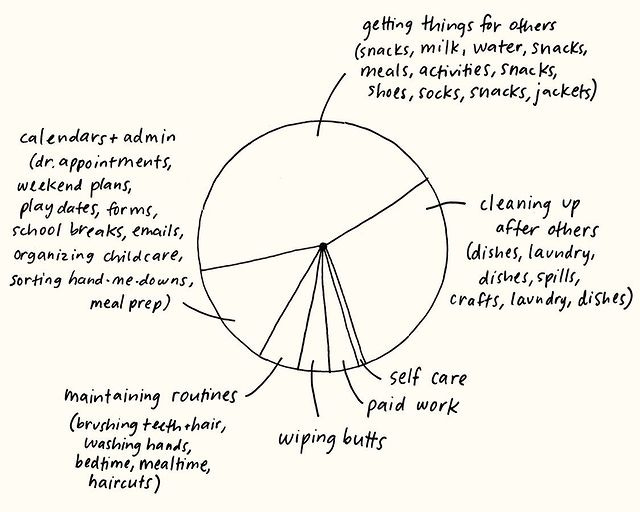 getting things for others
(snacks, milk, water, snacks,
meals, activities, snacks,
shoes, socks, snacks, jackets)
calendars + admin
(dr. appointments,
weekend plans,
play dates, forms,
school breaks, emails,
organizing childcare,
sorting hand-me-downs,
meal prep)
cleaning up
after others
(dishes, laundry,
dishes, spills,
crafts, laundry, dishes)
self care
paid work
wiping butts
maintaining routines
(brushing teeth + hair,
washing hands,
bedtime, mealtime,
haircuts)